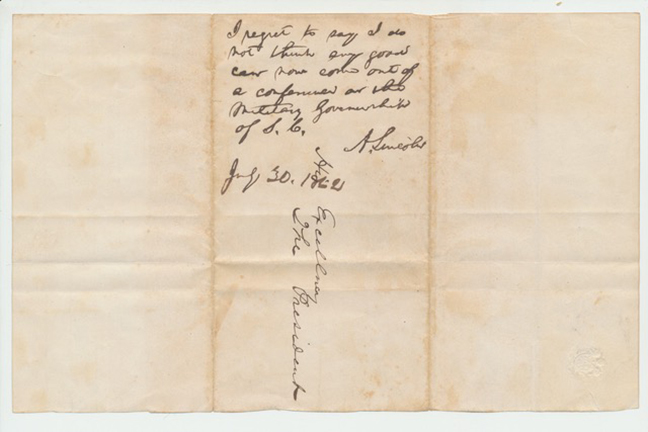 I regret to say I do
not think any good
can now come out of
a conference on the
Military Governorship
of S. C.
A. Lincoln
July 30. 1862
His Excellency
The President